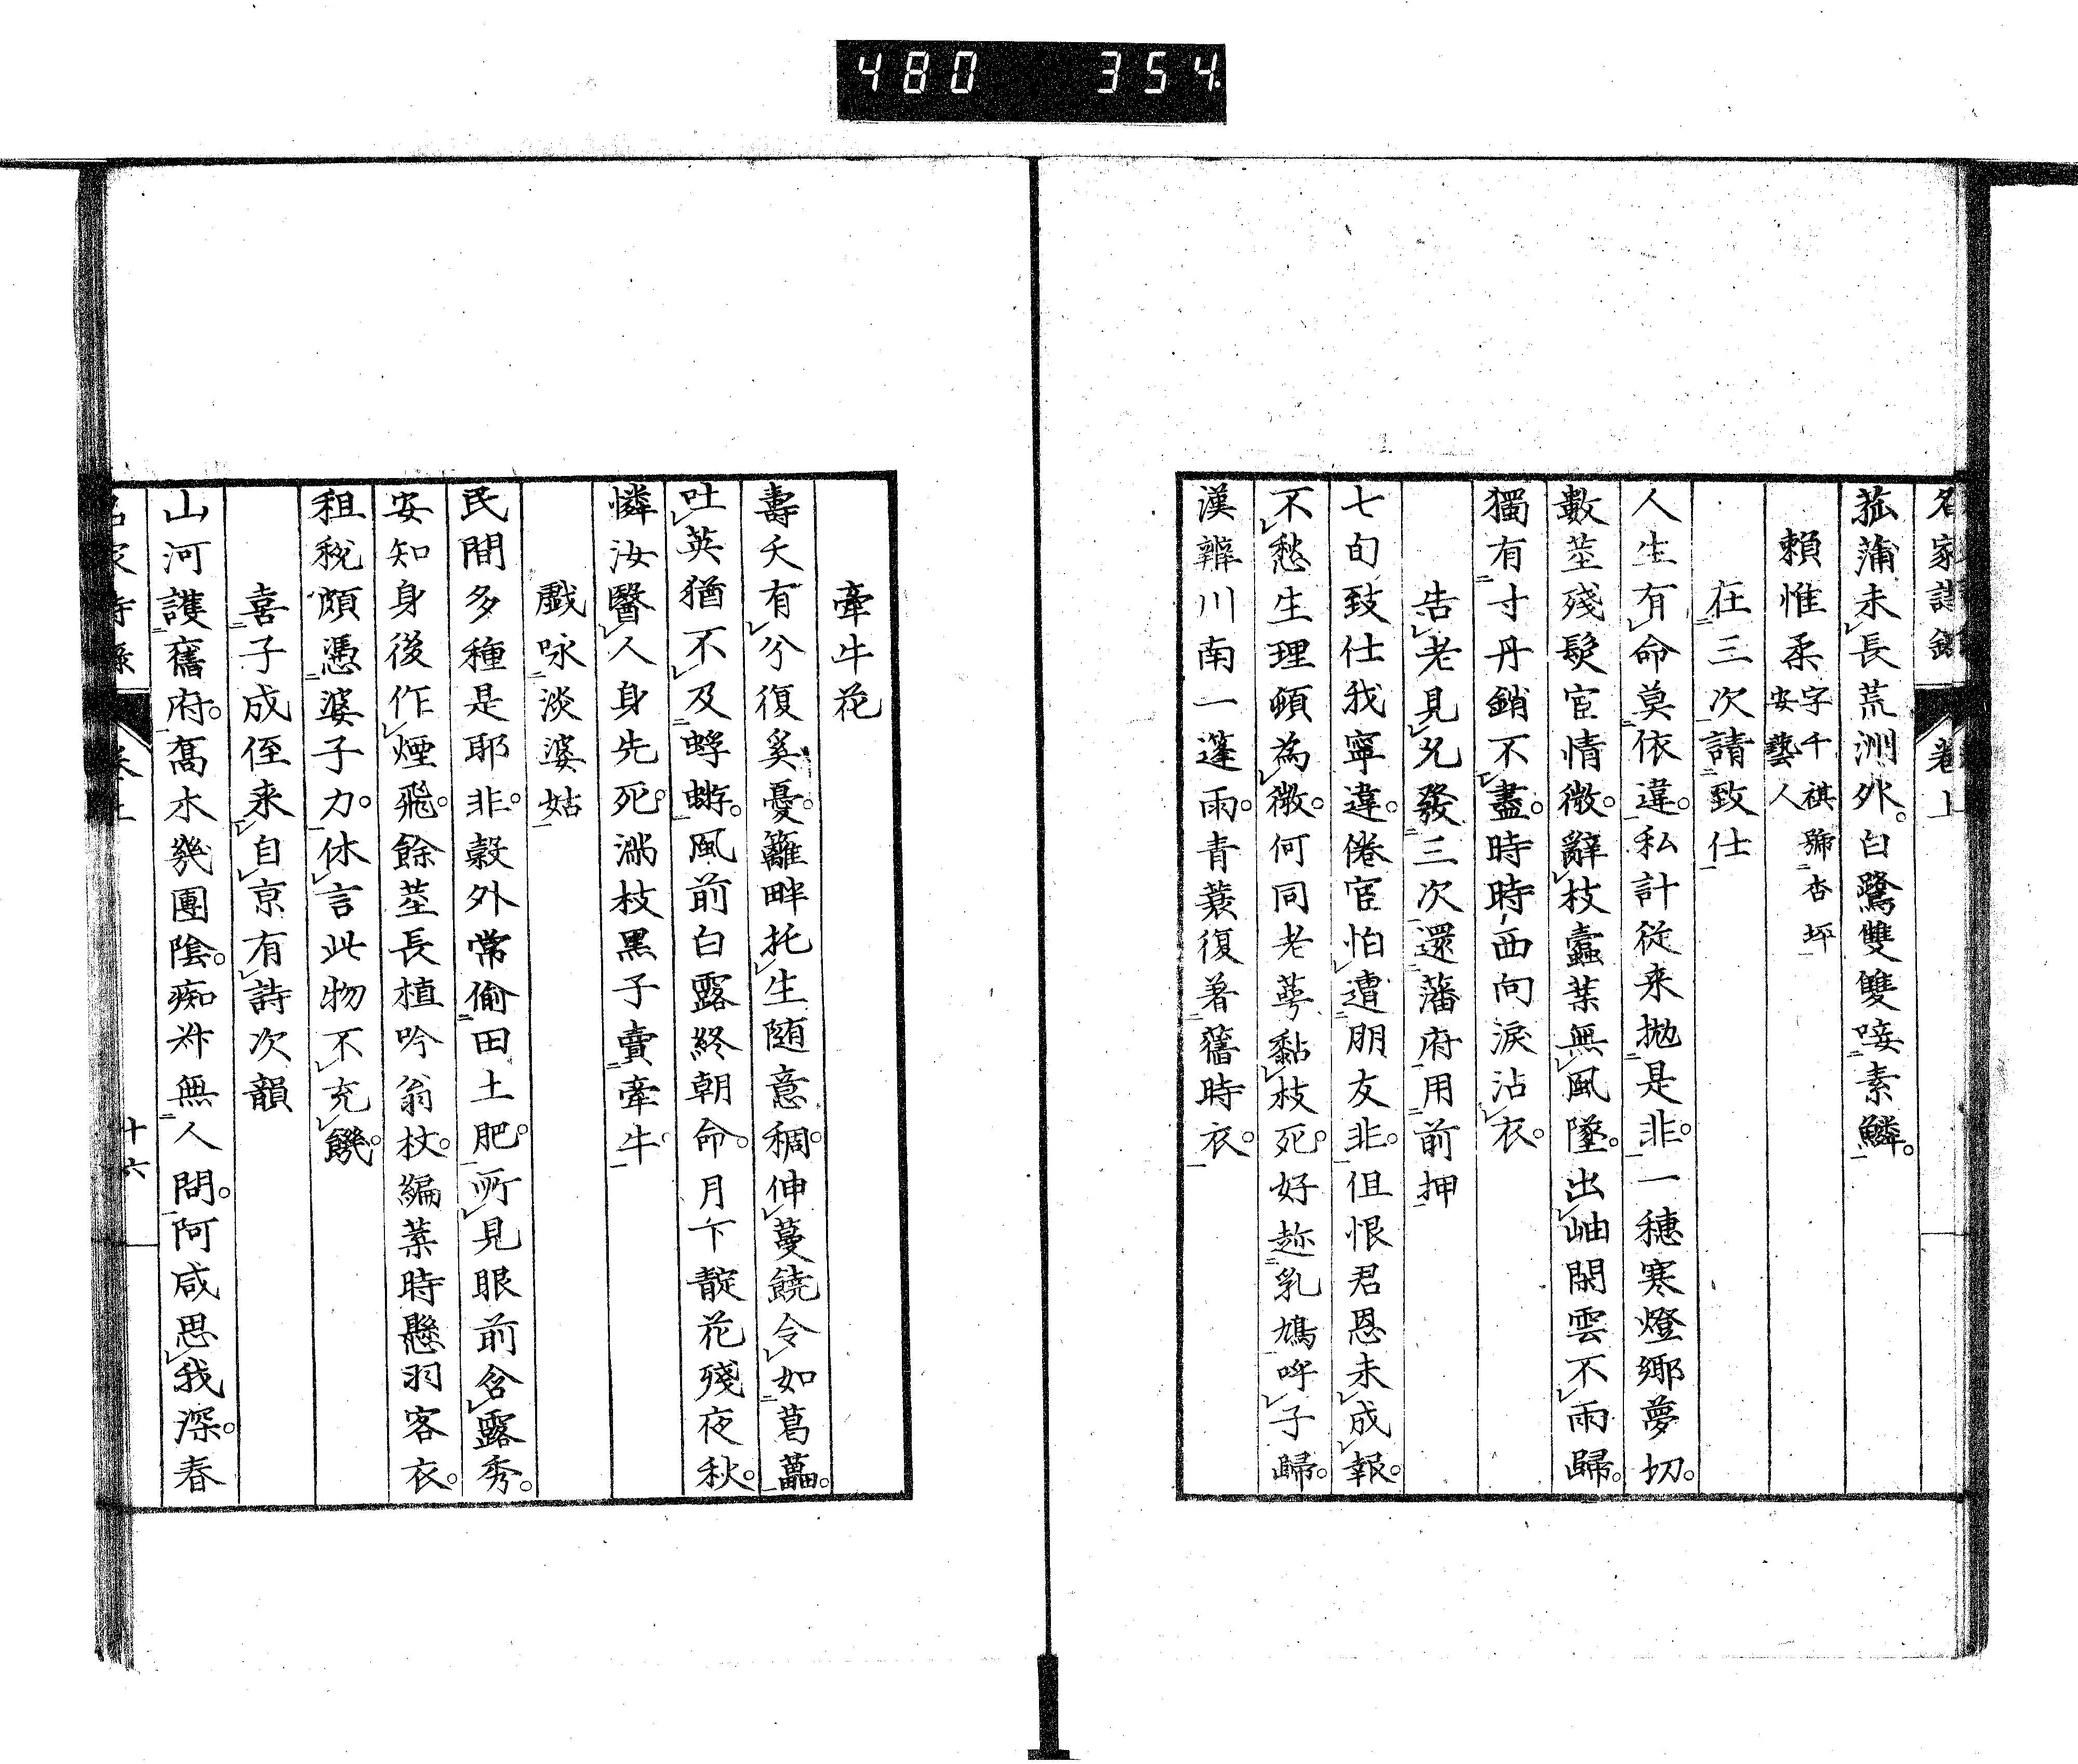 480 354
名家詩錄 卷上
菰蒲未長荒洲外。白鷺雙雙唼素鱗。
賴惟柔 字千祺號杏坪
安藝人
在三次請致仕
人生有命莫依違。私計從来拋是非。一穗寒燈鄉夢切。
數莖殘鬓宦情微。辭枝蠹葉無風墜。出岫閑雲不雨歸。
獨有寸丹銷不盡。時時西向淚沾衣。
告老見允發三次還藩府用前押
七旬致仕我寧違。倦宦怕遭朋友非。但恨君恩未成報。
不愁生理頓為微。何同老蕚黏枝死。好趂乳鳩呼子歸。
漢辨川南一蓬雨。青蓑復着舊時衣。
牽牛花
壽夭有分復奚憂。籬畔托生随意稠。伸蔓饒令如葛藟。
吐英猶不及蜉蝣。風前白露終朝命。月下靛花殘夜秋。
憐汝醫人身先死。滿枝黑子賣牽牛。
戲咏淡婆姑
民間多種是耶非。穀外常偷田土肥。所見眼前含露秀。
安知身後作煙飛。餘莖長植吟翁杖。編葉時懸羽客衣。
租稅頗憑婆子力。休言此物不充饑。
喜子成侄来自京有詩次韻
山河護舊府。喬木幾團陰。痴叔無人問。阿咸思我深。春
卷上
十六